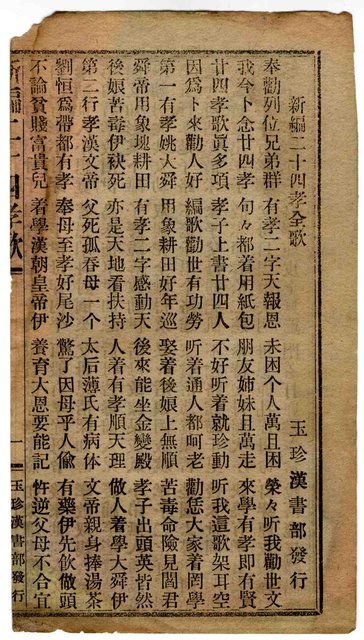 新編二十四孝全歌
玉珍漢書部發行
奉勸列位兄弟群 有孝二字天報恩 未困个人萬且困 榮々听我勸世文
我今卜念廿四孝 句々都着用紙包 朋友姊妹且萬走 來學有孝即有賢
廿四孝歌眞多項 孝子上書廿四人 不好听着就珍動 听我這歌耳空
因爲卜來勸人好 編歌勸世有功勞 听着通人都呵老 勸恁大家着罔學
第一有孝姚大舜 用象耕田好年巡 娶着後娘上無順 苦毒命險見閻君
舜帝用象塊耕田 有孝二字感動天 後來能坐金變殿 孝子出頭英皆然
後娘苦毒伊袂死 亦是天地看扶持 人着有孝順天理 做人着學大舜伊
第二行孝漢文帝 父死孤吞母一个 太后薄氏有病体 文帝親身捧湯茶
劉恒爲帶都有孝 奉母至孝好尾沙 驚了因母乎人偸 有藥伊先飮做頭
不論貧賤富貴兒 着學漢朝皇帝伊 養育大恩要能記 忤逆父母不合宜
新編二十四孝歌
一
玉珍漢書部發行